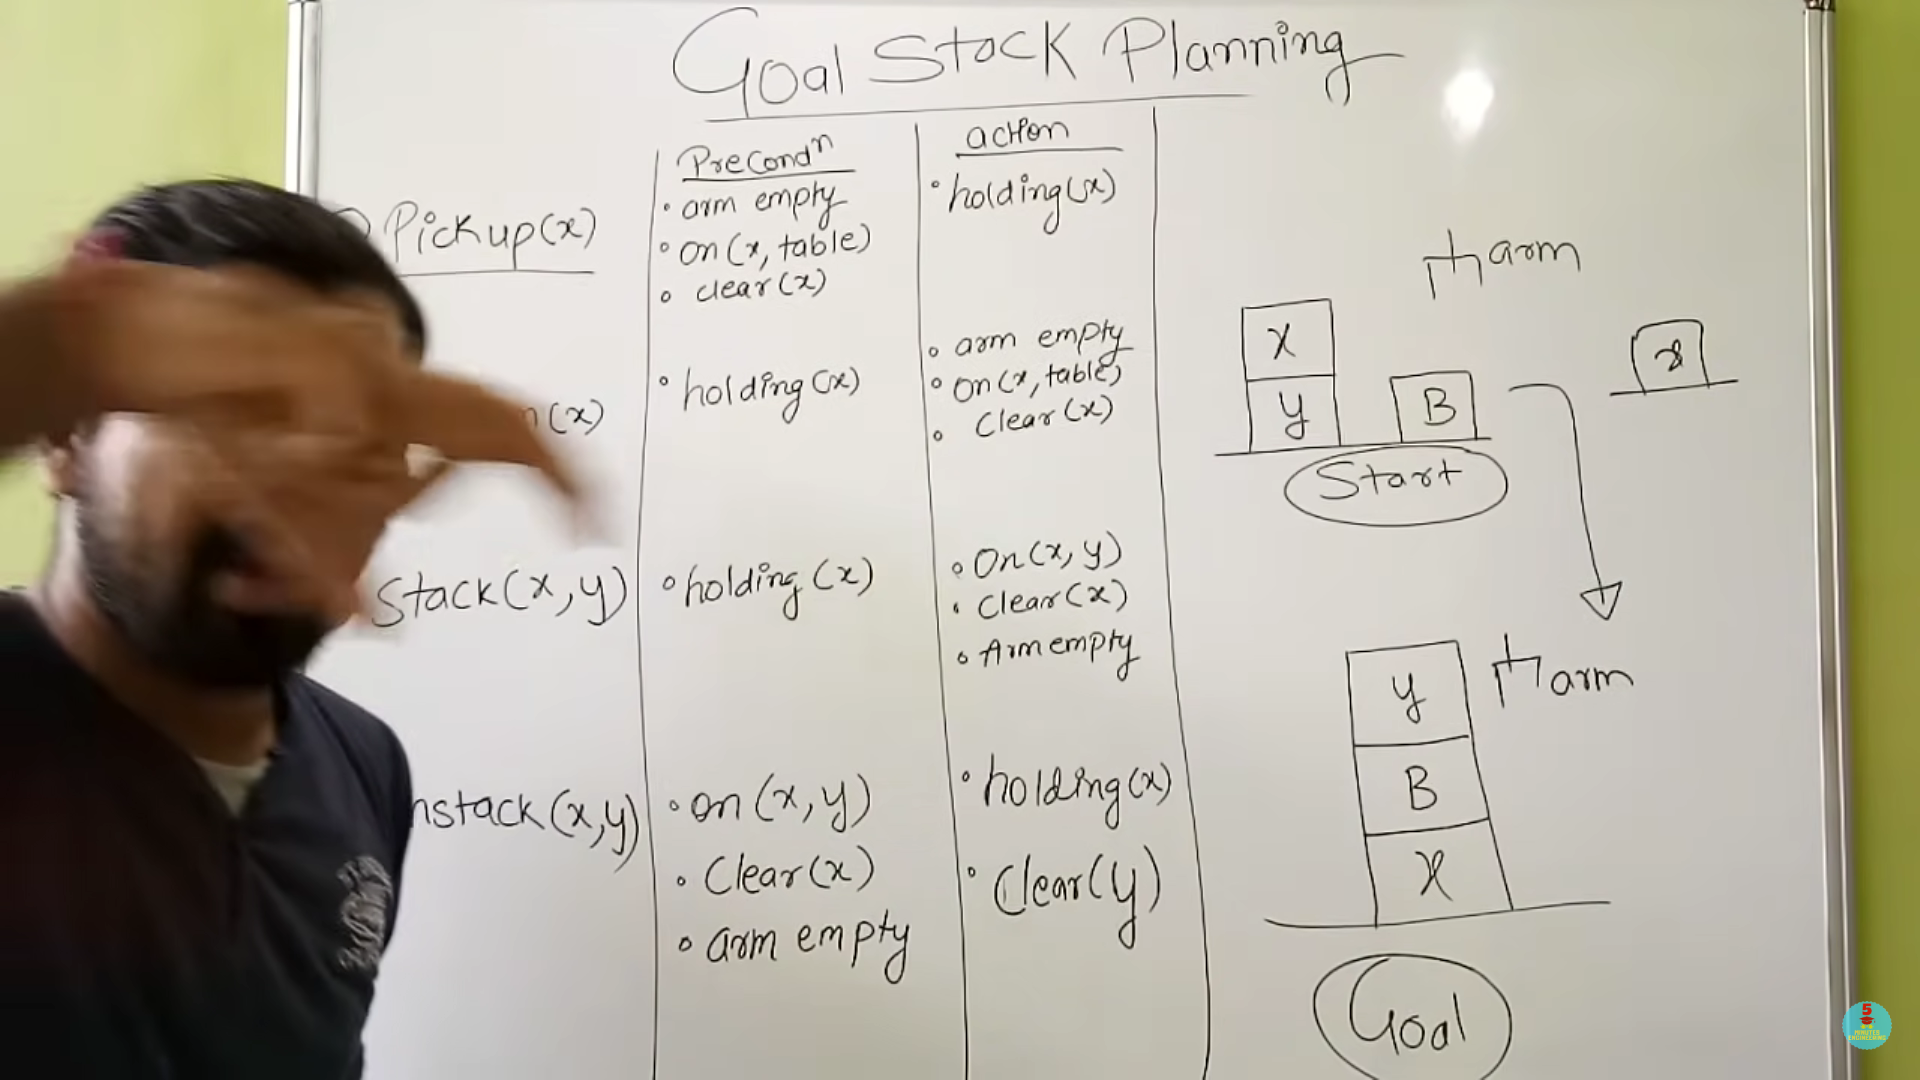 Goal Stack Planning
Precondⁿ
action
Pickup(x)
• arm empty
• on(x, table)
• clear(x)
• holding(x)
(x)
• holding(x)
• arm empty
• on(x, table)
• Clear(x)
Stack(x,y)
• holding(x)
• On(x, y)
• Clear(x)
• Arm empty
nstack(x,y)
• on(x, y)
• Clear(x)
• arm empty
• holding(x)
• Clear(y)
arm
x
y
B
x
Start
arm
y
B
x
Goal
5
MINUTES
ENGINEERING